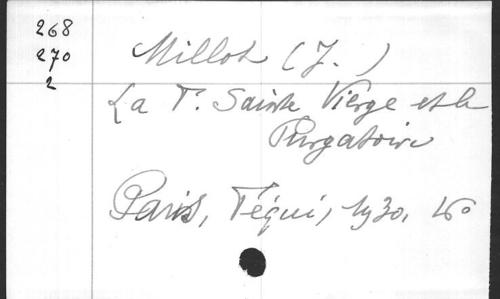 268
270
2
Millot (J.)
La T. Sainte Vierge et le
Purgatoire
Paris, Téqui, 1930, 16°